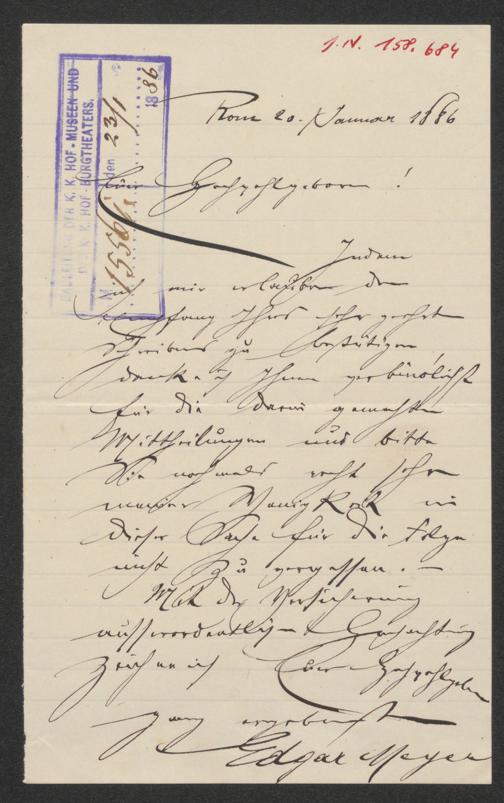 J.N. 158.684
BAULEITUNG DER K. K. HOF-MUSEEN UND
DES K. K. HOF-BURGTHEATERS.
den 23/1 1886
Rom 20. Januar 1886
Euer Hochwohlgeboren!
Indem
ich mir erlaube den
Empfang Ihres sehr geehrten
Schreibens zu bestätigen,
danke ich Ihnen verbindlichst
für die darin gemachten
Mittheilungen und bitte
Sie nochmals recht sehr
meiner Wenigkeit in
dieser Sache für die Folge
nicht zu vergessen. –
Mit der Versicherung
ausserordentlicher Hochachtung
zeichne ich Euer Hochwohlgeboren
ganz ergebenst
Edgar Meyer